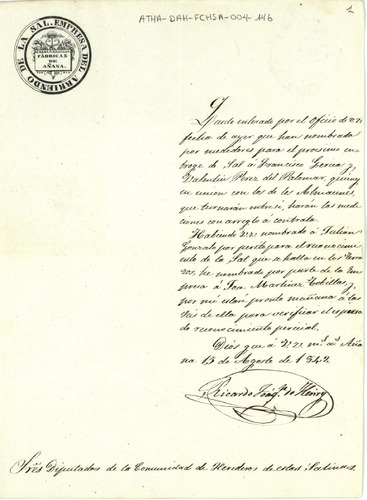 ATHA-DAH-FCHSA-004-146
1
EMPRESA DEL ARRIENDO DE LA SAL.
FÁBRICAS
DE
AÑANA.
Quedo enterado por el Oficio de VV
fecha de ayer que han nombrado
por medidores para el procsimo en-
troge de Sal á Francisco Garcia y
Valentin Perez del Palomar, quienes
en union con los de los Almacenes,
que turnarán entre si, harán las medi-
ciones con arreglo á contrata.
Habiendo VV nombrado á Julian
Gonzalo por perito para el reconocimi-
ento de la Sal que se halla en los Terra-
zos, he nombrado por parte de la Em-
presa á Martinez Tobillas y
por mi estará pronto mañana á las
seis de ella para verificar el espresa-
do reconocimiento pericial.
Dios gue á VV ms. as. Aña-
na 13 de Agosto de 1842.
Ricardo de
Sres. Diputados de la Comunidad de Herederos de estas Salinas.